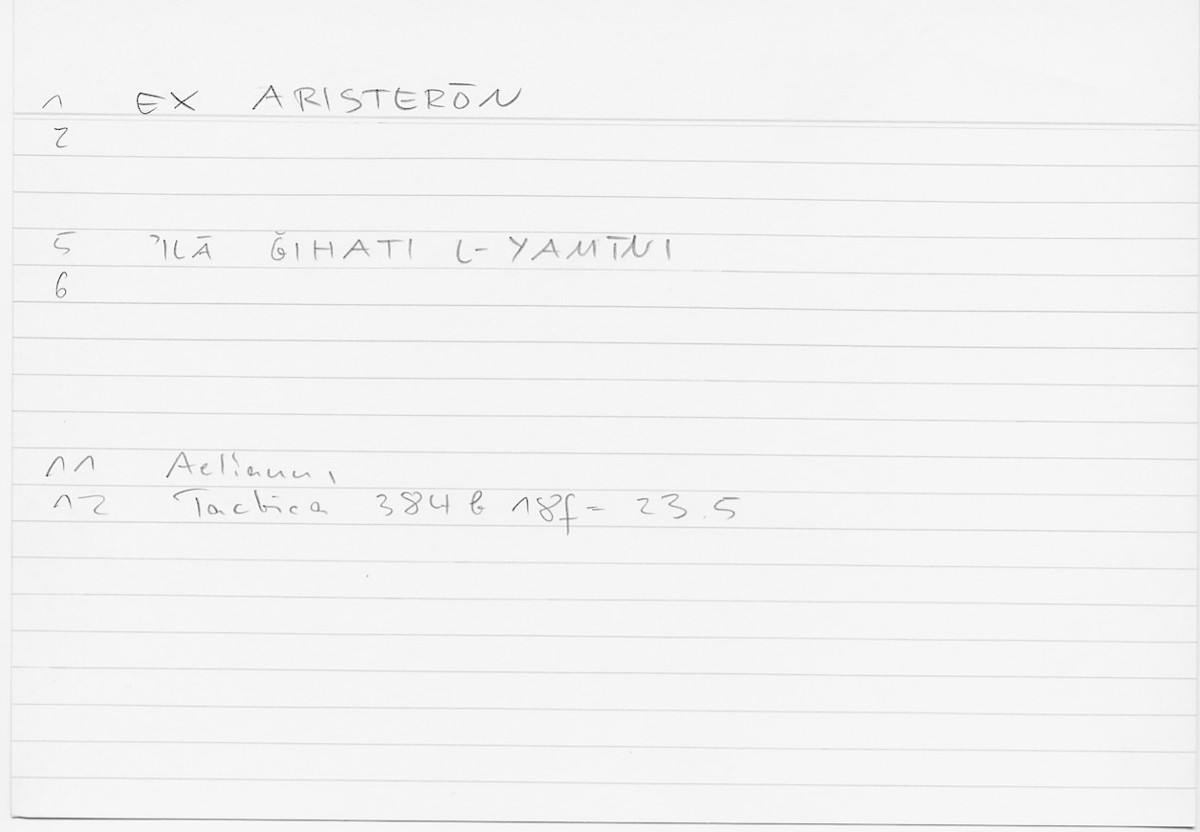 1 EX ARISTERŌN
2
5 ʾILĀ ĞIHATI L-YAMĪNI
6
11 Aelianus,
12 Tactica 384 b 18f = 23.5